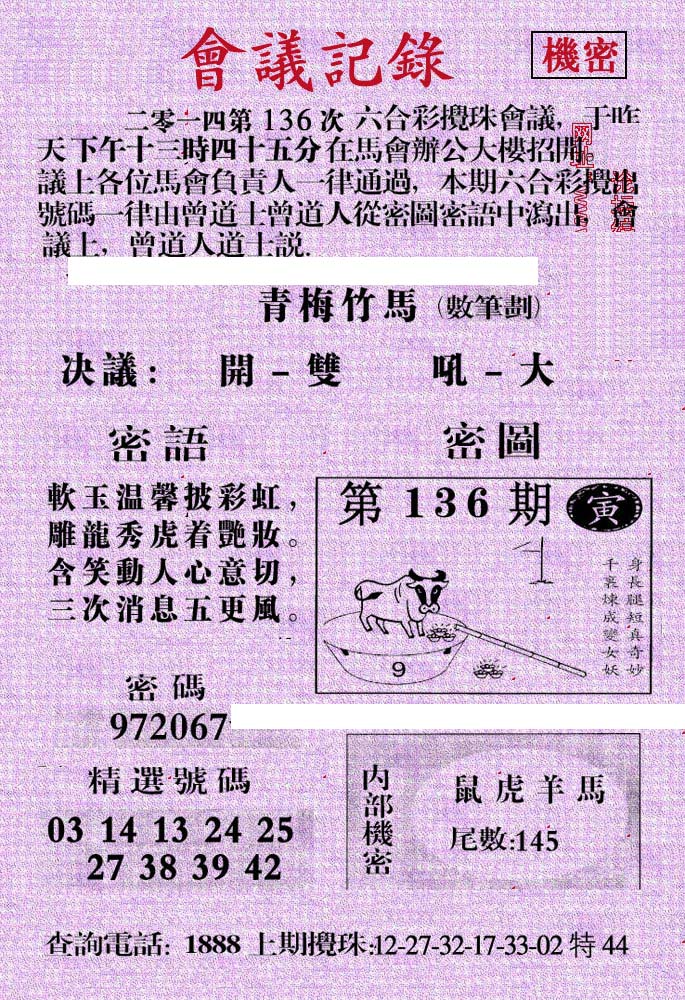 會議記錄
機密
二零一四第136次六合彩攪珠會議,于昨
天下午十三時四十五分在馬會辦公大樓招開
議上各位馬會負責人一律通過,本期六合彩攪出
號碼一律由曾道士曾道人從密圖密語中瀉出,會
議上,曾道人道士説.
青梅竹馬(數筆劃)
决議: 開-雙 吼-大
密語
軟玉温馨披彩虹,
雕龍秀虎着艷妝。
含笑動人心意切,
三次消息五更風。
密圖
第136期 寅
身長腿短真奇妙
千裏煉成變女妖
9
密碼
972067
精選號碼
03 14 13 24 25
27 38 39 42
内部機密
鼠虎羊馬
尾數:145
查詢電話: 1888 上期攪珠:12-27-32-17-33-02 特 44